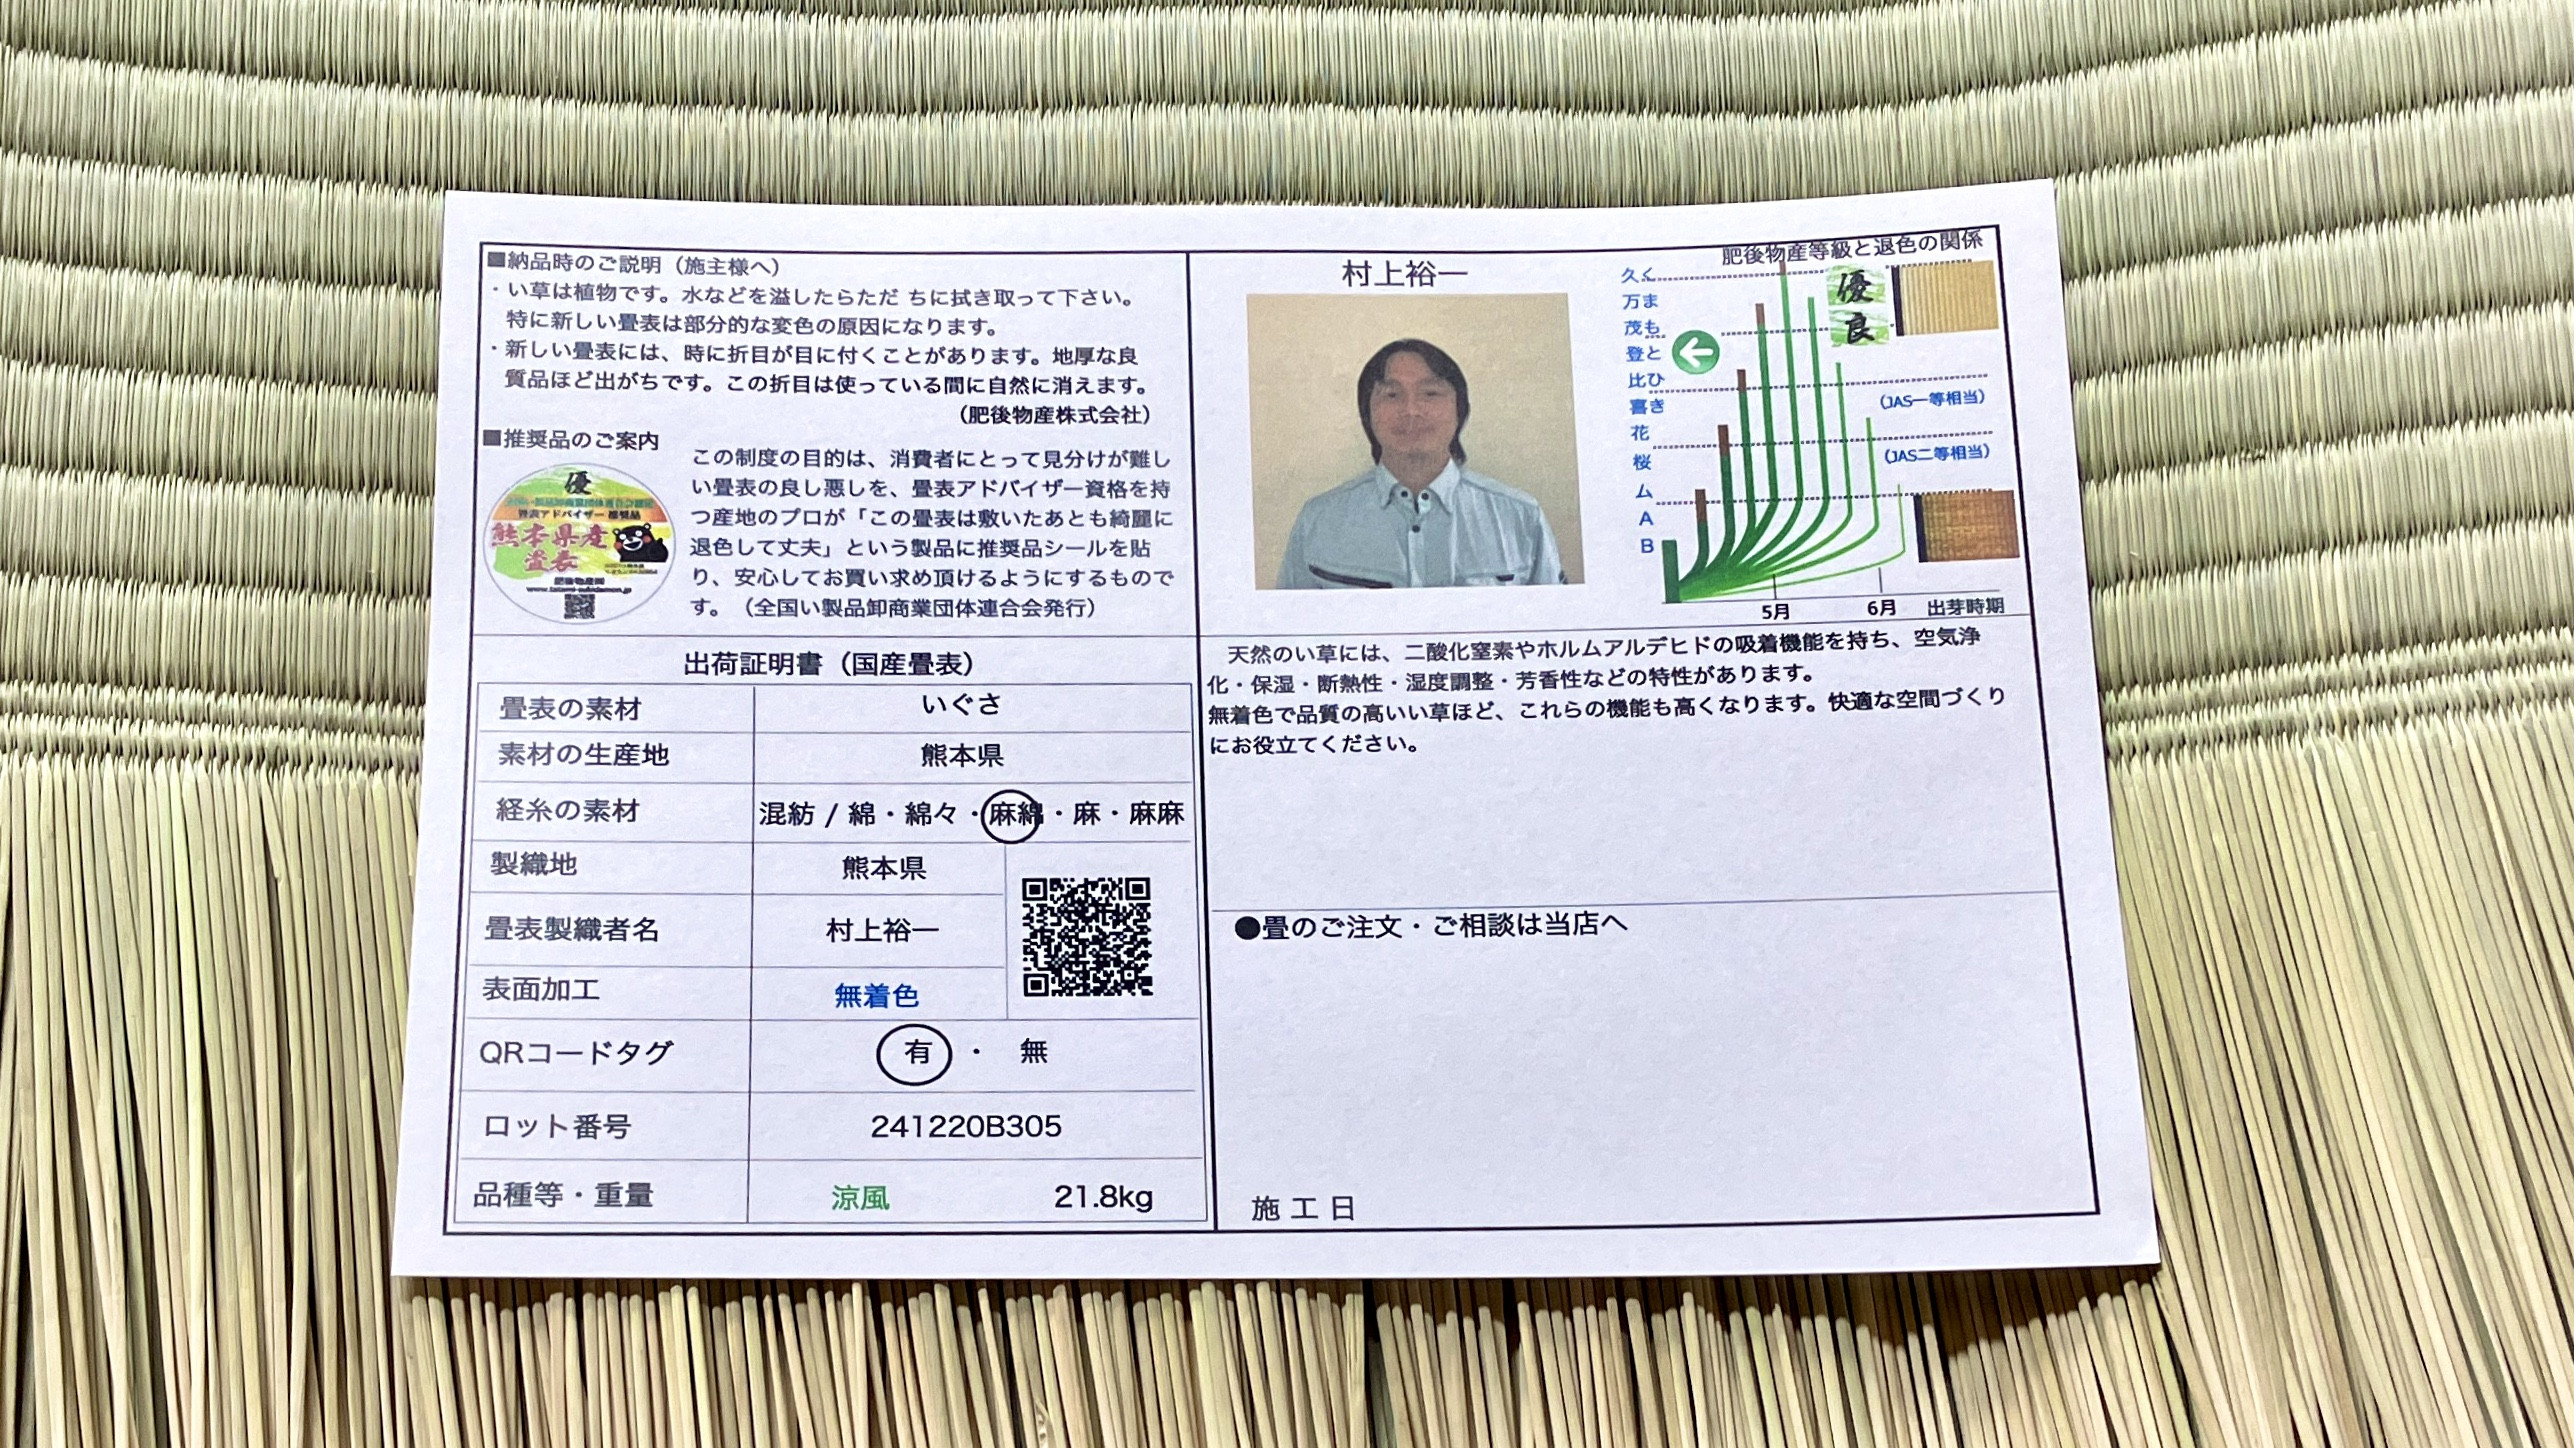 ■納品時のご説明（施主様へ）
・い草は植物です。水などを溢したらただ ちに拭き取って下さい。
特に新しい畳表は部分的な変色の原因になります。
・新しい畳表には、時に折目が目に付くことがあります。地厚な良
質品ほど出がちです。この折目は使っている間に自然に消えます。
（肥後物産株式会社）
■推奨品のご案内
優
畳表アドバイザー 推奨品
熊本県産
畳表
この制度の目的は、消費者にとって見分けが難し
い畳表の良し悪しを、畳表アドバイザー資格を持
つ産地のプロが「この畳表は敷いたあとも綺麗に
退色して丈夫」という製品に推奨品シールを貼
り、安心してお買い求め頂けるようにするもので
す。（全国い製品卸商業団体連合会発行）
出荷証明書（国産畳表）
畳表の素材 いぐさ
素材の生産地 熊本県
経糸の素材 混紡 / 綿・綿々・麻綿・麻・麻麻
製織地 熊本県
畳表製織者名 村上裕一
表面加工 無着色
QRコードタグ 有 ・ 無
ロット番号 241220B305
品種等・重量 涼風 21.8kg
村上裕一
肥後物産等級と退色の関係
久く
万ま
茂も
登と
比ひ
喜き
花
桜
ム
A
B
優
良
（JAS一等相当）
（JAS二等相当）
5月 6月 出芽時期
天然のい草には、二酸化窒素やホルムアルデヒドの吸着機能を持ち、空気浄
化・保湿・断熱性・湿度調整・芳香性などの特性があります。
無着色で品質の高いい草ほど、これらの機能も高くなります。快適な空間づくり
にお役立てください。
●畳のご注文・ご相談は当店へ
施工日